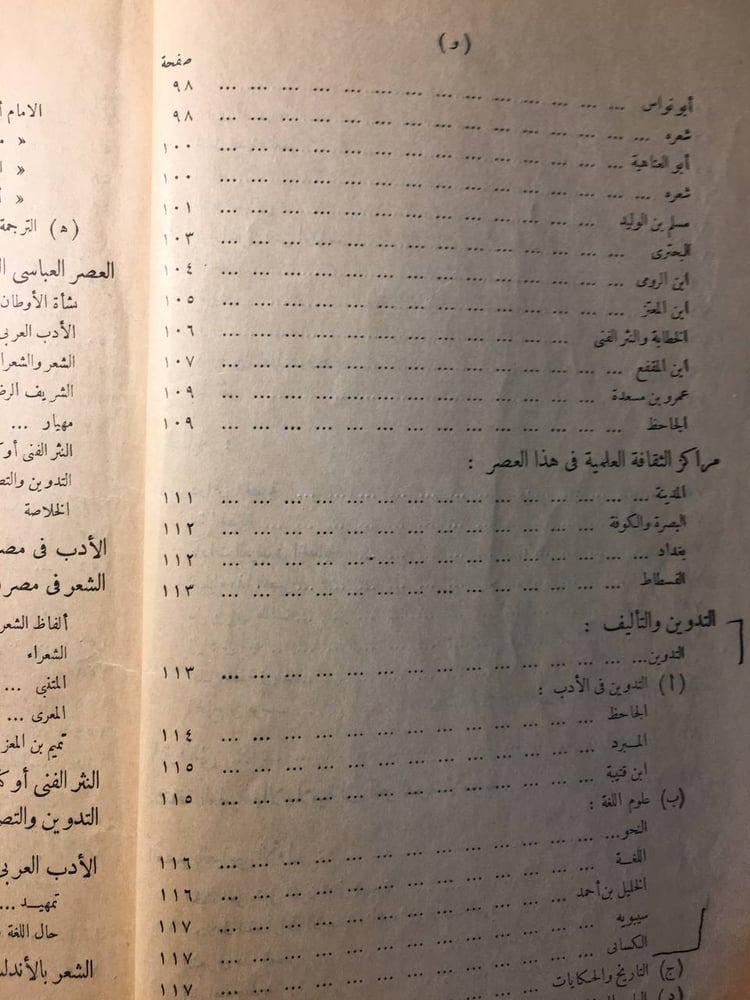 (و)
صفحة
أبو نواس ... ... ... ... ... ... ... ... ... ... ... ... ... ... ٩٨
شعره ... ... ... ... ... ... ... ... ... ... ... ... ... ... ٩٨
أبو العتاهية ... ... ... ... ... ... ... ... ... ... ... ... ... ١٠٠
شعره ... ... ... ... ... ... ... ... ... ... ... ... ... ... ١٠٠
مسلم بن الوليد ... ... ... ... ... ... ... ... ... ... ... ... ... ١٠١
البحترى ... ... ... ... ... ... ... ... ... ... ... ... ... ... ١٠٣
ابن الرومى ... ... ... ... ... ... ... ... ... ... ... ... ... ١٠٤
ابن المعتز ... ... ... ... ... ... ... ... ... ... ... ... ... ١٠٥
الخطابة والنثر الفنى ... ... ... ... ... ... ... ... ... ... ... ... ١٠٦
ابن المقفع ... ... ... ... ... ... ... ... ... ... ... ... ... ... ١٠٧
عمرو بن مسعدة ... ... ... ... ... ... ... ... ... ... ... ... ... ١٠٩
الجاحظ ... ... ... ... ... ... ... ... ... ... ... ... ... ... ١٠٩
مراكز الثقافة العلمية فى هذا العصر :
المدينة ... ... ... ... ... ... ... ... ... ... ... ... ... ... ١١١
البصرة والكوفة ... ... ... ... ... ... ... ... ... ... ... ... ... ١١٢
بغداد ... ... ... ... ... ... ... ... ... ... ... ... ... ... ١١٢
الفسطاط ... ... ... ... ... ... ... ... ... ... ... ... ... ... ١١٣
التدوين والتأليف :
التدوين ... ... ... ... ... ... ... ... ... ... ... ... ... ... ١١٣
(أ) التدوين فى الأدب :
الجاحظ ... ... ... ... ... ... ... ... ... ... ... ... ... ١١٤
المبرد ... ... ... ... ... ... ... ... ... ... ... ... ... ١١٥
ابن قتيبة ... ... ... ... ... ... ... ... ... ... ... ... ... ١١٥
(ب) علوم اللغة :
النحو ... ... ... ... ... ... ... ... ... ... ... ... ... ... ١١٦
اللغة ... ... ... ... ... ... ... ... ... ... ... ... ... ١١٦
الخليل بن أحمد ... ... ... ... ... ... ... ... ... ... ... ... ١١٧
سيبويه ... ... ... ... ... ... ... ... ... ... ... ... ... ١١٧
الكسائى ... ... ... ... ... ... ... ... ... ... ... ... ... ١١٧
(ج) التاريخ والحكايات ... ... ...
الامام
»
»
»
(ه) الترجمة
العصر العباسى
نشأة الأوطان
الأدب العربى
الشعر والشعرا
الشريف الرض
مهيار ...
النثر الفنى أو
التدوين والتص
الخلاصة
الأدب فى مصر
الشعر فى مصر
ألفاظ الشعر
الشعراء
المتنبى ...
المعرى ...
تميم بن المعز
النثر الفنى أو
التدوين والتص
الأدب العربى
تمهيد ...
حال اللغة
الشعر بالأندل